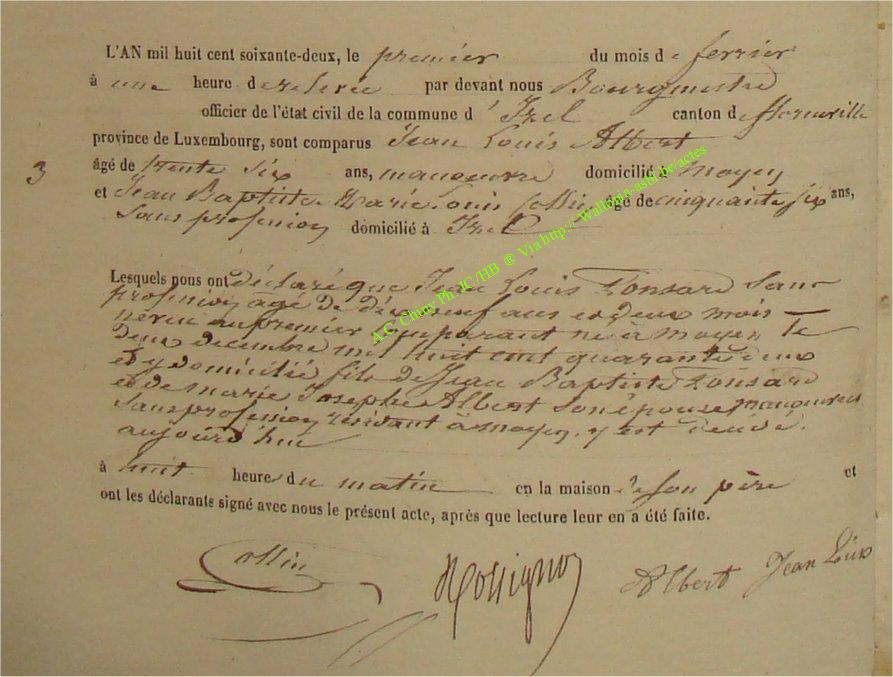 L'AN mil huit cent soixante-deux, le premier du mois de fevrier
à une heure de relevée par devant nous Bourgmestre
officier de l'état civil de la commune d'Izel canton de florenville
province de Luxembourg, sont comparus Jean Louis Albert
3 âgé de trente six ans, manoeuvre domicilié à moyen
et Jean Baptiste Marie Louis Collin, âgé de cinquante six ans,
Sans profession domicilié à Izel
Lesquels nous ont Déclaré que Jean Louis Ponsard Sans
profession agé de dix neuf ans et deux mois
neveu au premier comparant né à moyen le
deux decembre mil huit cent quarante deux
et y domicilié fils de Jean Baptiste Ponsard
et de marie Josephe Albert son épouse manouvriers
Sans profession résidant à moyen, y est décédé
aujourd'hui
à huit heure du matin en la maison de son père et
ont les déclarants signé avec nous le présent acte, après que lecture leur en a été faite.
Collin Rossignon Albert Jean Louis
A.C. Chiny Ph. JC/HB ® Via http://Wallonia-asbl.be/actes